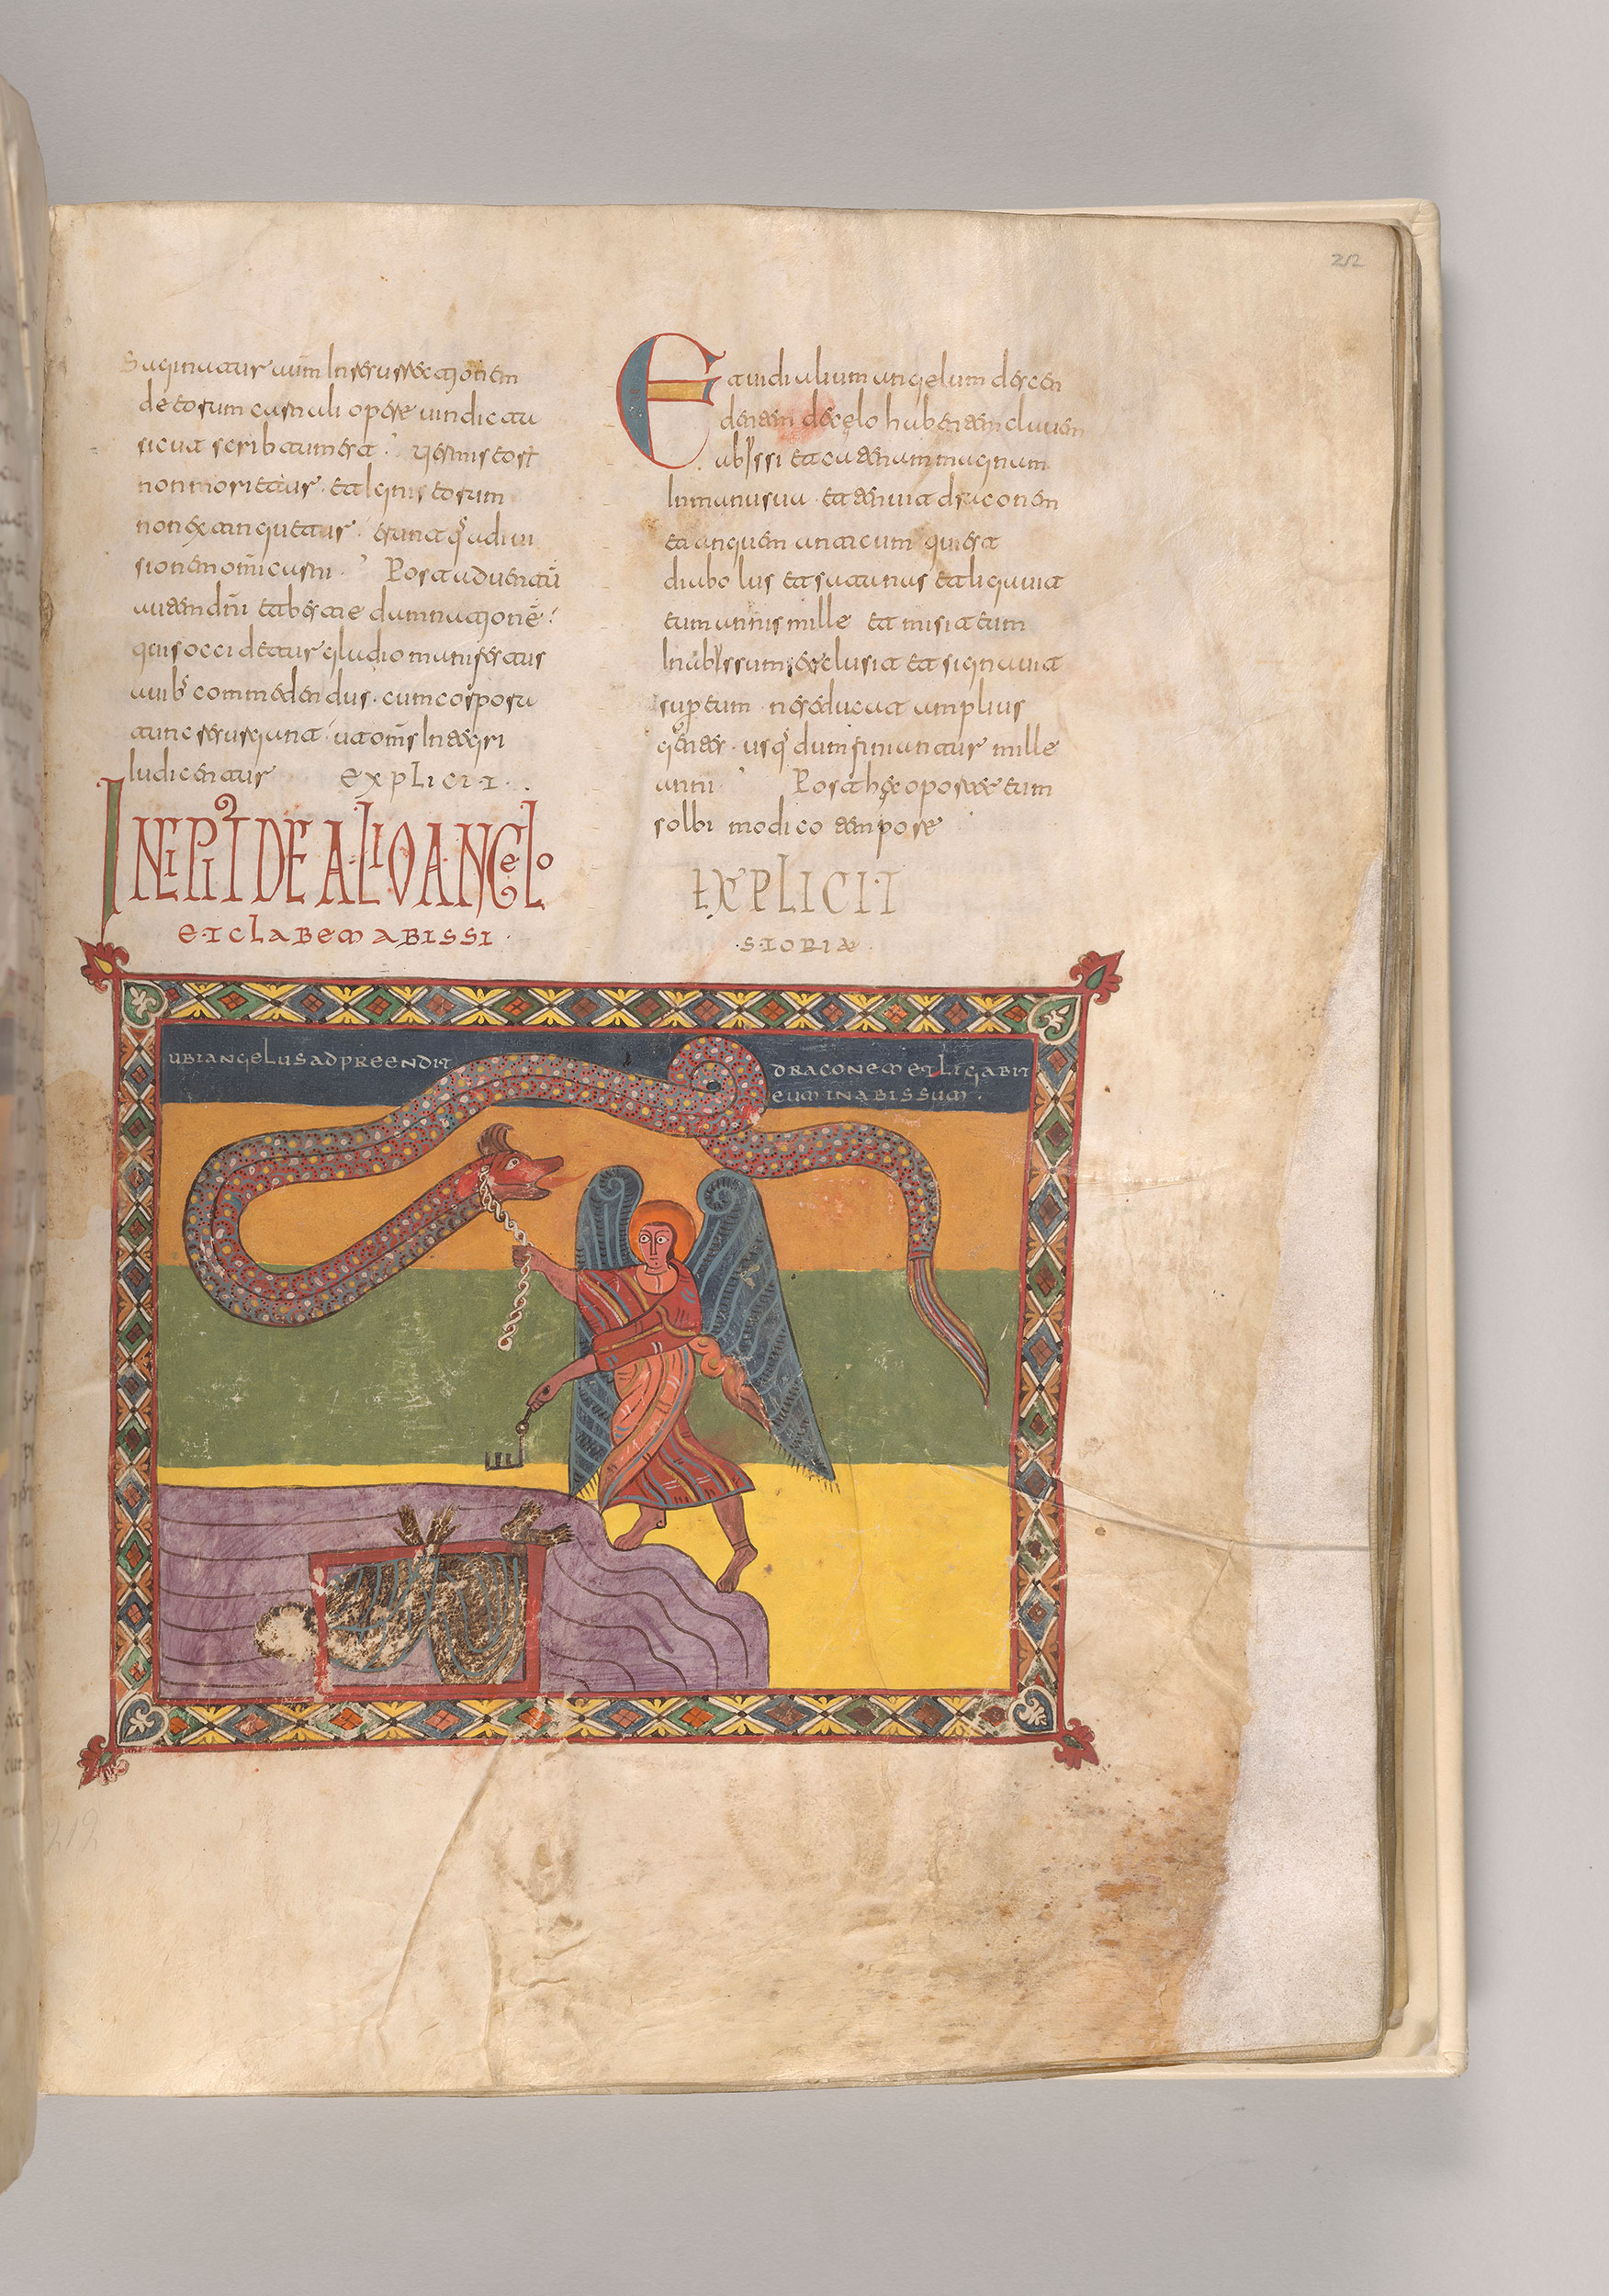 Saginatur autem In resurrectionem
de eorum carnali opere uindicta
sicut scribtum est· uermis eor
non morietur· et Ignis eorum
non extinguetur· erunt q̄ ad ui
sionem om̄i carni· Post aduentū
autem dn̄i et bestie damnationē·
auib; commedendus· cum corpora
tunc resurgunt· ut om̄s Integri
Iudicentur EXPLICIT·
INCIPIT DE ALIO ANGELO
ET CLABEM ABISSI·
Et uidi alium angelum descen
dentem de celo habentem clauem
abyssi et catenam magnam
In manu sua· et tenuit draconem
et anguem anticum qui est
diabolus et satanas et ligauit
eum annis mille et misit eum
In abyssum et clusit et signauit
super eum· ne seducat amplius
gentes· usq; dum finiantur mille
anni· Post hec oportet eum
solbi modico tempore
EXPLICIT
STORIÆ
UBI ANGELUS ADPREENDIT
DRACONEM ET LIGABIT
EUM IN ABISSUM·
212
212